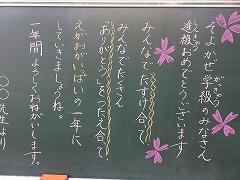 そよかぜ学級のみなさん
進級おめでとうございます
みんなでたすけ合って
みんなでたくさん
「ありがとう」をつたえ合って
えがおがいっぱいの一年に
していきましょうね。
一年間よろしくおねがいします。
〇〇先生より